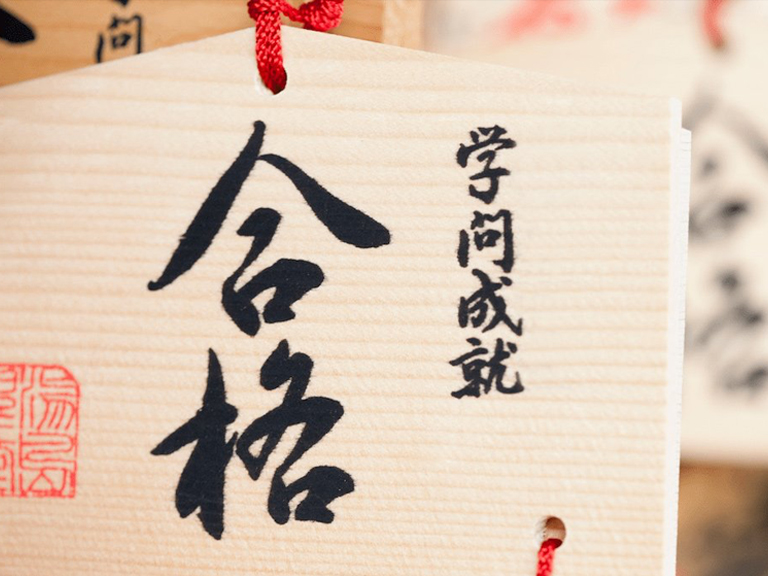 学問成就
合格
問